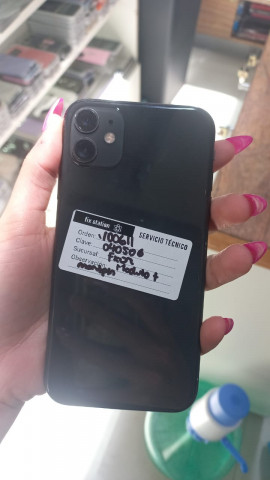 fix station
SERVICIO TÉCNICO
Orden: 100611
Clave: 040506
Sucursal:
Observación: Modulo +